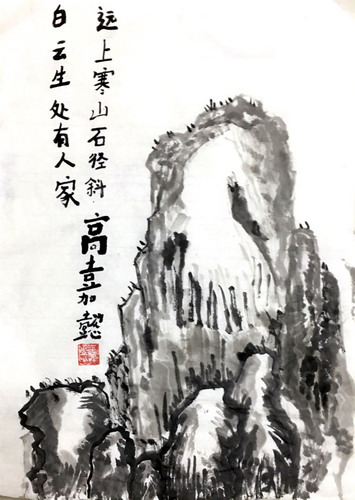 远上寒山石径斜
白云生处有人家
高嘉懿